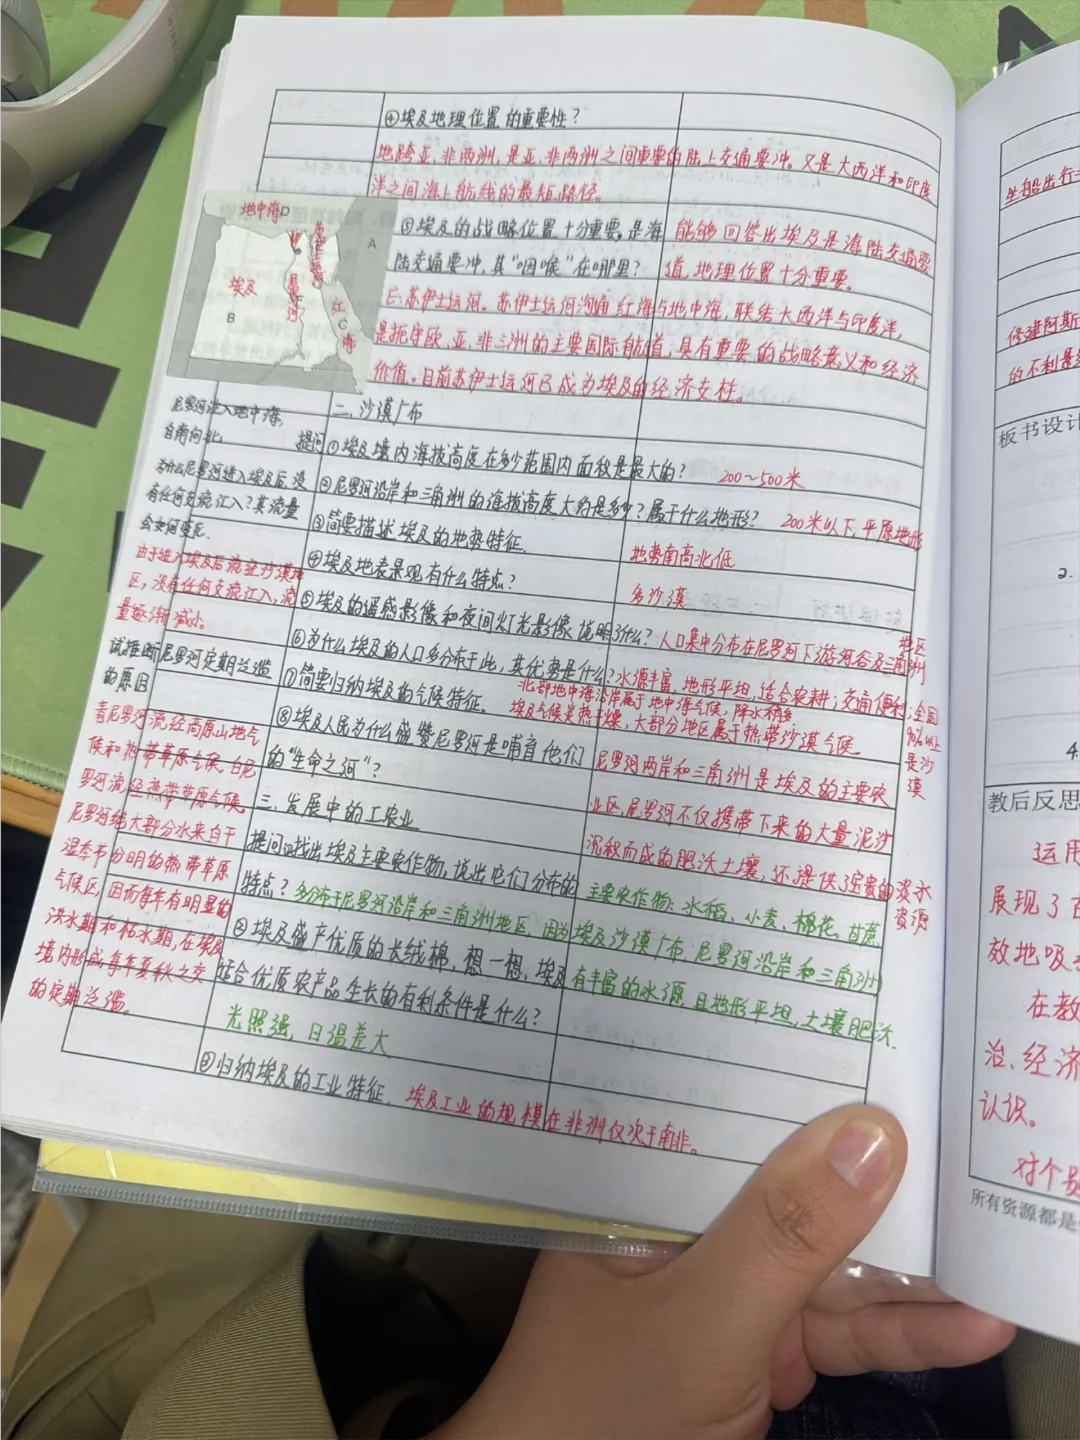 ④埃及地理位置的重要性?
地跨亚、非两洲,是亚、非两洲之间重要的陆上交通要冲。又是大西洋和印度
洋之间海上航线的最短路径。
⑤埃及的战略位置十分重要。是海
陆交通要冲,其“咽喉”在哪里?
能够回答出埃及是海陆交通要
道,地理位置十分重要。
E:苏伊士运河。苏伊士运河沟通红海与地中海,联结大西洋与印度洋,
是扼守欧、亚、非三洲的主要国际航道,具有重要的战略意义和经济
价值。目前苏伊士运河已成为埃及的经济支柱。
地中海D
A
埃及
B
红
C
海
尼罗河注入地中海,
自南向北。
为什么尼罗河进入埃及后,没
有任何支流汇入?其流量
会如何变化.
由于进入埃及后流经沙漠地
区,没有任何支流汇入,流
量逐渐减小。
试推断尼罗河定期泛滥
的原因
青尼罗河流经高原山地气
候和热带草原气候,白尼
罗河流经热带草原气候。
尼罗河绝大部分水来自干
湿季节分明的热带草原
气候区,因而每年有明显的
洪水期和枯水期,在埃及
境内形成每年夏秋之交
的定期泛滥。
二、沙漠广布
提问①埃及境内海拔高度在多少范围内面积是最大的?
200~500米
②尼罗河沿岸和三角洲的海拔高度大约是多少?属于什么地形?
200米以下,平原地形
③简要描述埃及的地势特征.
地势南高北低
④埃及地表景观有什么特点?
多沙漠
⑤埃及的遥感影像和夜间灯光影像说明了什么?
人口集中分布在尼罗河下游河谷及三角洲
地区
⑥为什么埃及的人口多分布于此,其优势是什么?
水源丰富,地形平坦,适合农耕;交通便利
⑦简要归纳埃及的气候特征。
北部地中海沿岸属于地中海气候,降水稍多
埃及气候炎热干燥,大部分地区属于热带沙漠气候。
;全国
是沙
漠
⑧埃及人民为什么盛赞尼罗河是哺育他们
的“生命之河”?
尼罗河两岸和三角洲是埃及的主要农
业区,尼罗河不仅携带下来的大量泥沙
沉积而成的肥沃土壤,还提供了宝贵的淡水
资源
三、发展中的工农业
提问①找出埃及主要农作物,说出它们分布的
特点?
主要农作物:水稻、小麦、棉花、甘蔗
多分布于尼罗河沿岸和三角洲地区,因为埃及沙漠广布,尼罗河沿岸和三角洲
有丰富的水源,且地形平坦,土壤肥沃.
②埃及盛产优质的长绒棉,想一想,埃及
适合优质农产品生长的有利条件是什么?
光照强,日温差大
③归纳埃及的工业特征.
埃及工业的规模在非洲仅次于南非。
坐船出行
修建阿斯
的不利是
板书设计
2.
4
教后反思
运用
展现了
效地吸
在教
治、经济
认识。
对个别
所有资源都是